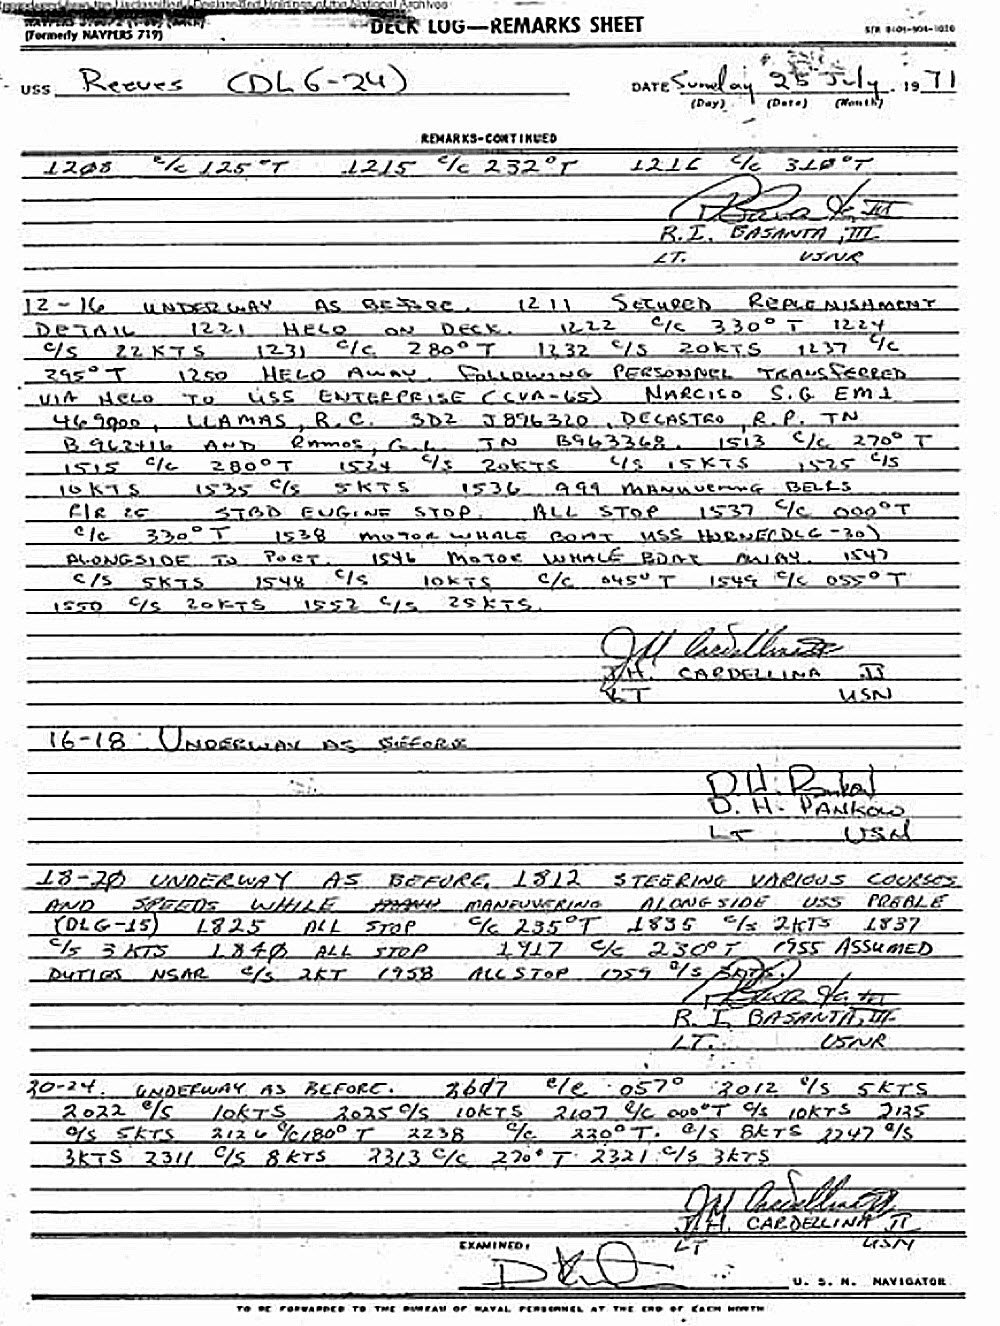 Reproduced from the Unclassified / Declassified Holdings of the National Archives
(Formerly NAVPERS 719)
DECK LOG—REMARKS SHEET
USS Reeves (DLG-24) DATE Sunday 25 July, 1971
(Day) (Date) (Month)
REMARKS-CONTINUED
1208 c/c 125°T 1215 c/c 232°T 1216 c/c 310°T
R.I. BASANTA, III
LT. USNR
12-16 UNDERWAY AS BEFORE. 1211 SECURED REPLENISHMENT
DETAIL 1221 HELO ON DECK. 1222 c/c 330°T 1224
c/s 22KTS 1231 c/c 280°T 1232 c/s 20KTS 1237 c/c
295°T 1250 HELO AWAY. FOLLOWING PERSONNEL TRANSFERRED
VIA HELO TO USS ENTERPRISE (CVA-65) NARCISO S.G EM1
, LLAMAS, R.C. SD2 J896320, DECASTRO, R.P. TN
B962416 AND RAMOS, G.L. TN B963368. 1513 c/c 270°T
1515 c/c 280°T 1524 c/s 20KTS c/s 15KTS 1525 c/s
10KTS 1535 c/s 5KTS 1536 999 MANUVERING BELLS
STBD ENGINE STOP. ALL STOP 1537 c/c 000°T
c/c 330°T 1538 MOTOR WHALE BOAT USS HORNE(DLG-30)
ALONGSIDE TO PORT. 1546 MOTOR WHALE BOAT AWAY. 1547
c/s 5KTS 1548 c/s 10KTS c/c 045°T 1549 c/c 055°T
1550 c/s 20KTS 1552 c/s 25KTS.
J.H. CARDELLINA II
LT USN
16-18 UNDERWAY AS BEFORE
D.H. PANKOW
LT USN
18-20 UNDERWAY AS BEFORE. 1812 STEERING VARIOUS COURSES
AND SPEEDS WHILE MANEUVERING ALONGSIDE USS PREBLE
(DLG-15) 1825 ALL STOP c/c 235°T 1835 c/s 2KTS 1837
c/s 3KTS 1840 ALL STOP 1917 c/c 230°T 1955 ASSUMED
DUTIES NSAR c/s 2KT 1958 ALL STOP 1959 c/s 5KTS.
R.I. BASANTA, III
LT. USNR
20-24. UNDERWAY AS BEFORE. 2007 c/c 057° 2012 c/s 5KTS
2022 c/s 10KTS 2025 c/s 10KTS 2107 c/c 000°T c/s 10KTS 2125
c/s 5KTS 2126 c/c 180°T 2238 c/c 220°T. c/s 8KTS 2247 c/s
3KTS 2311 c/s 8KTS 2313 c/c 270°T 2321 c/s 3KTS
J.H. CARDELLINA II
LT USN
EXAMINED:
U. S. N. NAVIGATOR
TO BE FORWARDED TO THE BUREAU OF NAVAL PERSONNEL AT THE END OF EACH MONTH